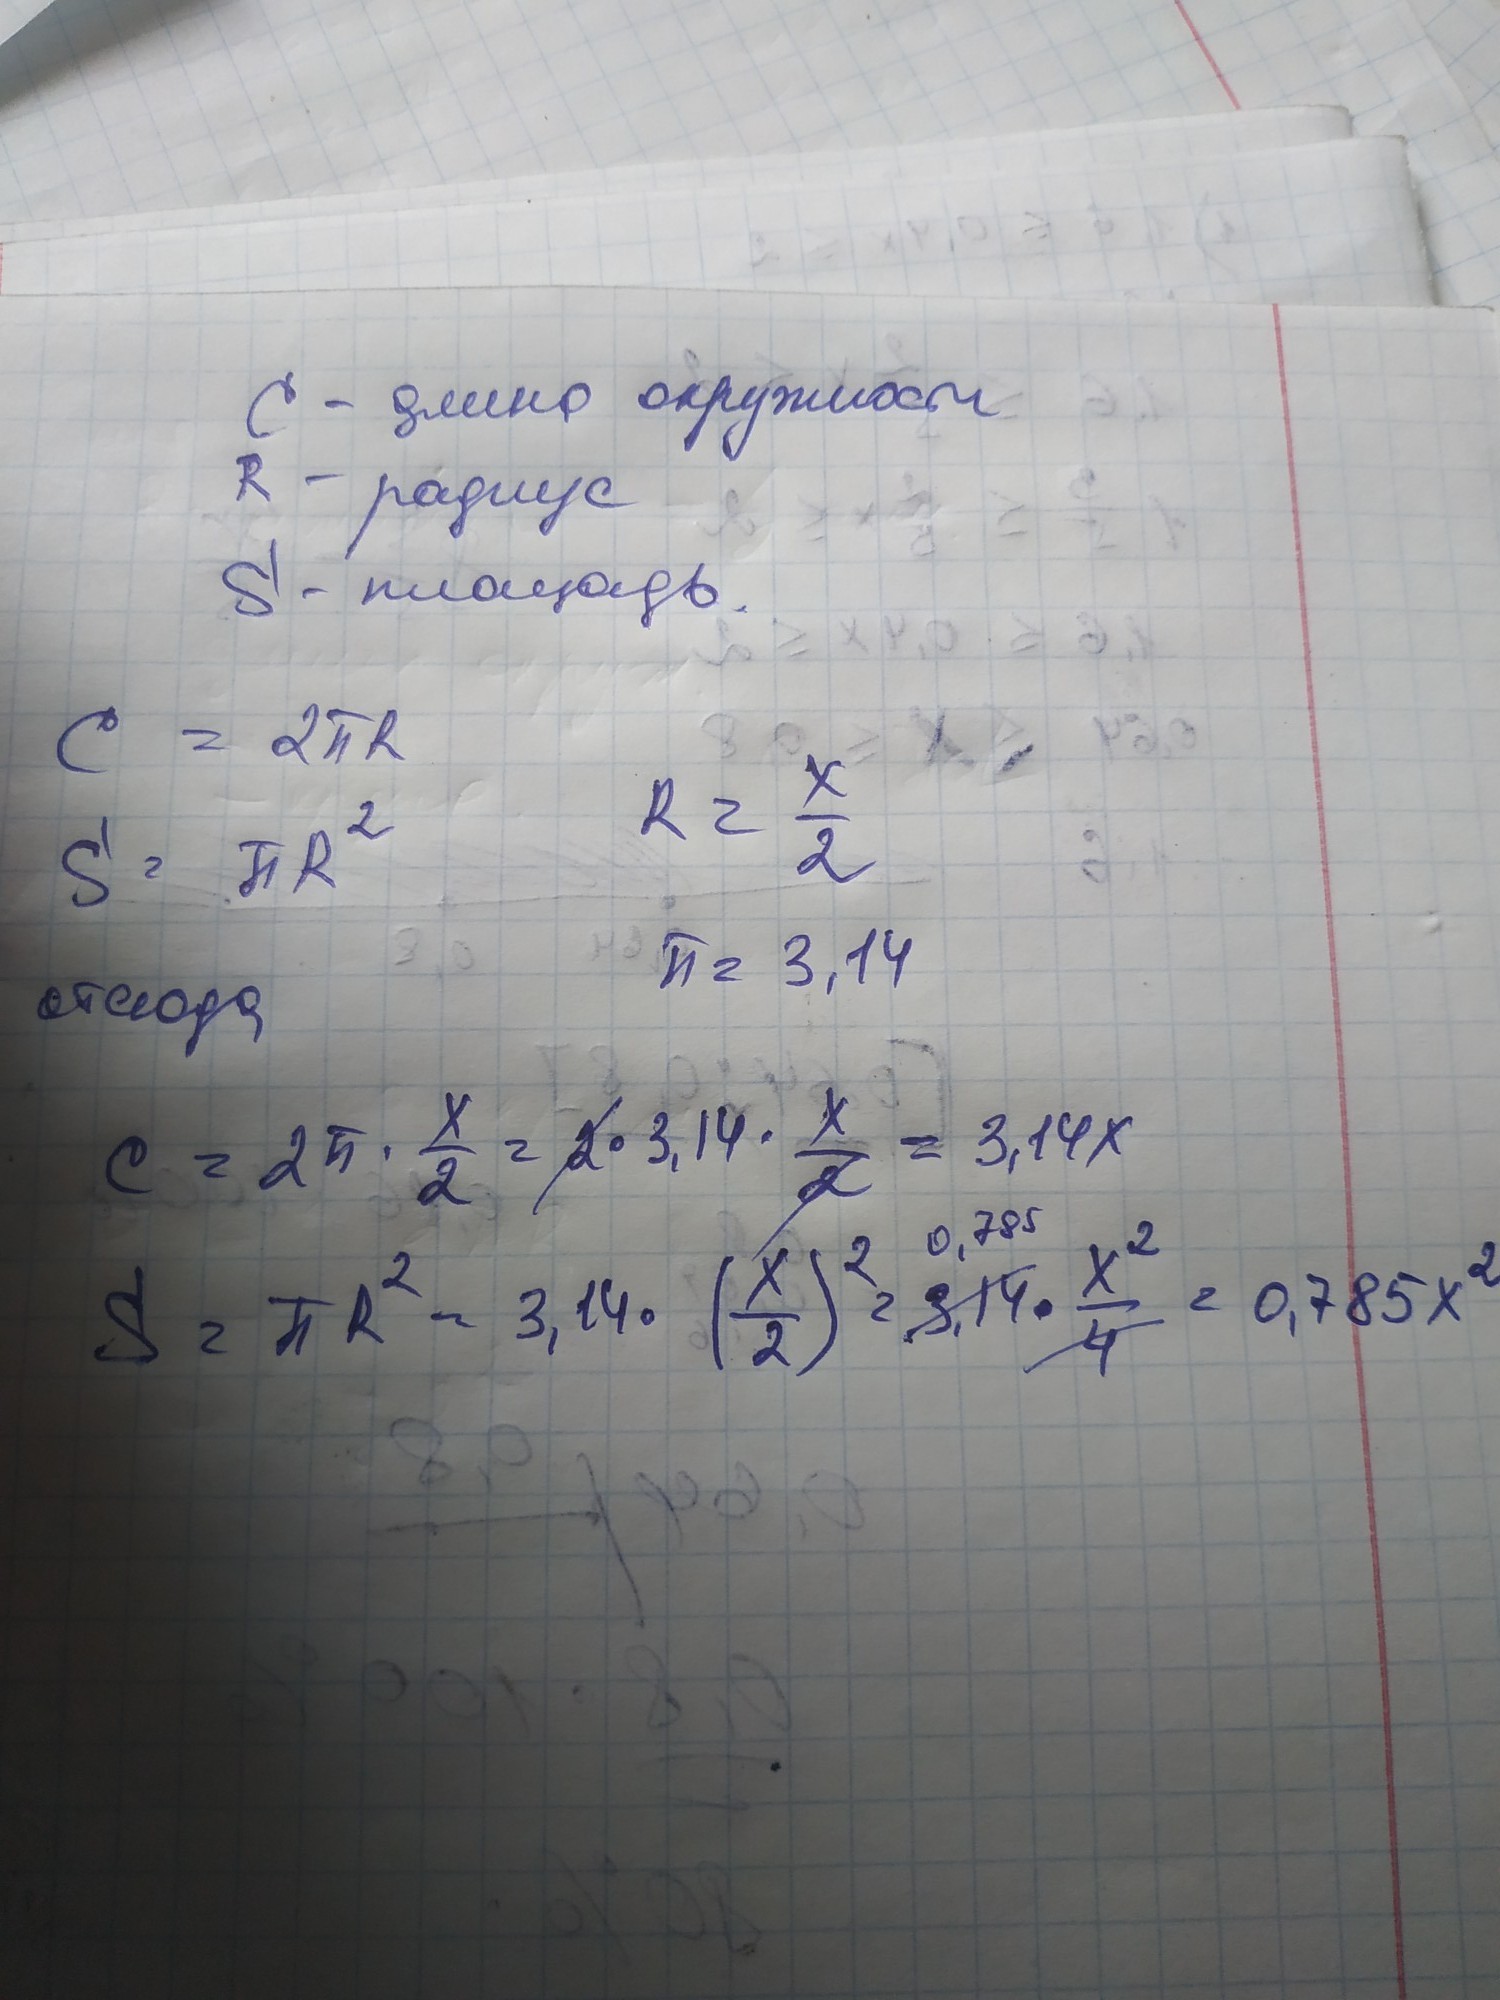 C - длина окружности
R - радиус
S - площадь.
C = 2πR
R = x/2
S = πR²
π = 3,14
отсюда
C = 2π · x/2 = 2 · 3,14 · x/2 = 3,14x
0,785
S = πR² = 3,14 · (x/2)² = 3,14 · x²/4 = 0,785x²